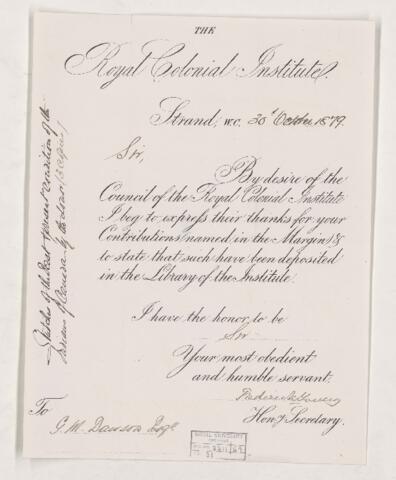 THE
Royal Colonial Institute.
Strand, W.C. 30th October 1879.
Sir,
By desire of the
Council of the Royal Colonial Institute
I beg to express their thanks for your
Contributions named in the Margin, &
to state that such have been deposited
in the Library of the Institute.
I have the honor, to be
Sir
Your most obedient
and humble servant.
Frederick Young
Hony. Secretary.
To
G. M. Dawson Esqre
Sketches of the Past & present condition of the
Indians of Canada. by the donor